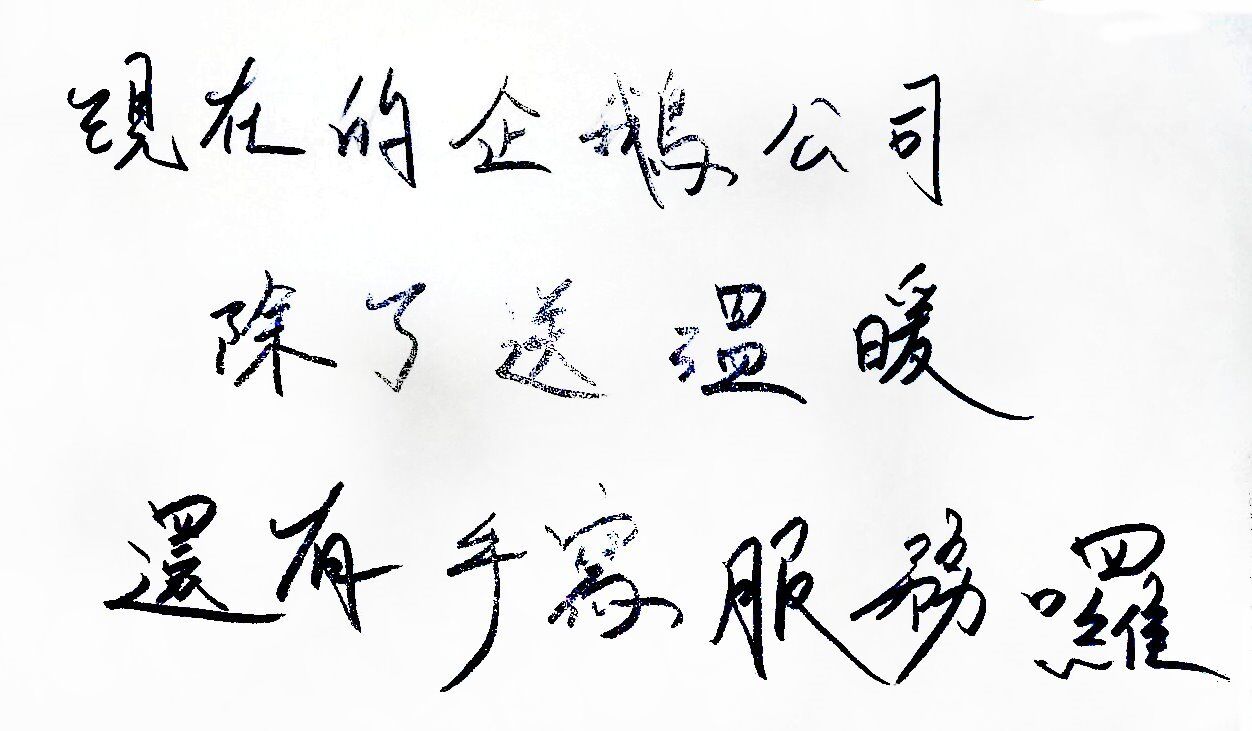 現在的企鵝公司
除了送溫暖
還有手寫服務囉